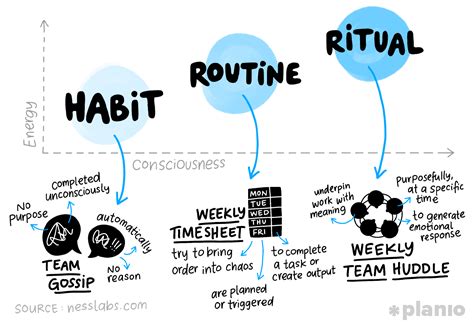 HABIT
ROUTINE
RITUAL
Energy
Consciousness
No
purpose
Completed
unconsciously
automatically
No
reason
TEAM
GOSSIP
WEEKLY
TIMESHEET
MON
TUE
WED
THU
FRI
try to bring
order into chaos
are planned
or triggered
to complete
a task or
create output
underpin
work with
meaning
purposefully,
at a specific
time
to generate
emotional
response
WEEKLY
TEAM HUDDLE
SOURCE: nesslabs.com
*planio